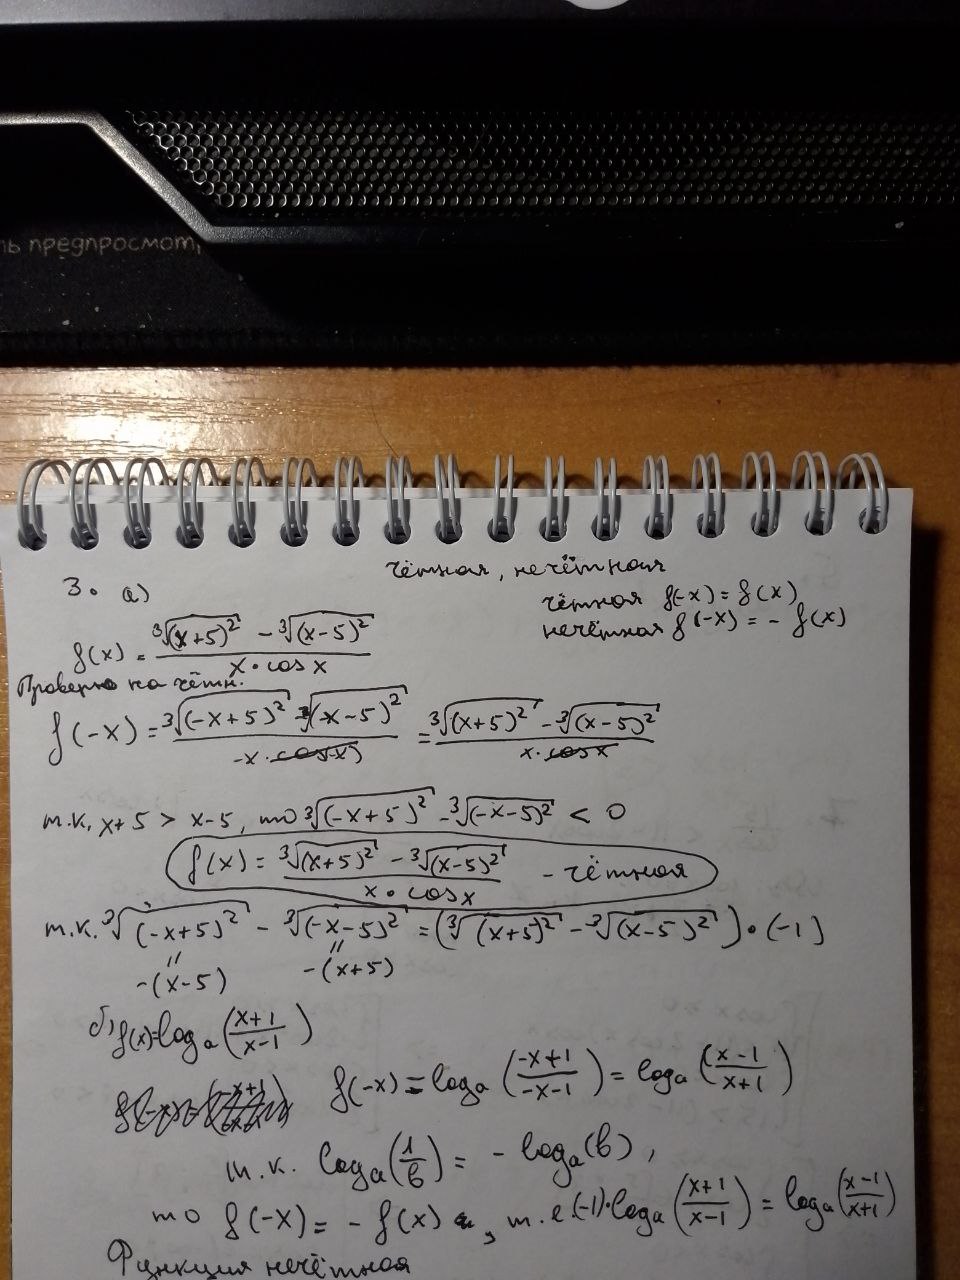 ль предпросмот
чётная, нечётная
3. а)
чётная f(-x) = f(x)
нечётная f(-x) = - f(x)
f(x) = (∛(x+5)² - ∛(x-5)²) / (x · cos x)
Проверю на чётн.
f(-x) = (∛(-x+5)² - ∛(-x-5)²) / (-x · cos(-x)) = (∛(x+5)² - ∛(x-5)²) / (x · cos x)
т.к. x+5 > x-5, то ∛(-x+5)² - ∛(-x-5)² < 0
f(x) = (∛(x+5)² - ∛(x-5)²) / (x · cos x) - чётная
т.к. ∛(-x+5)² - ∛(-x-5)² = (∛(x+5)² - ∛(x-5)²) · (-1)
" "
-(x-5) -(x+5)
б) f(x) = logₐ((x+1)/(x-1))
f(-x) = logₐ((-x+1)/(-x-1)) = logₐ((x-1)/(x+1))
т.к. logₐ(1/b) = - logₐ(b),
то f(-x) = - f(x), т.е (-1)·logₐ((x+1)/(x-1)) = logₐ((x-1)/(x+1))
Функция нечётная